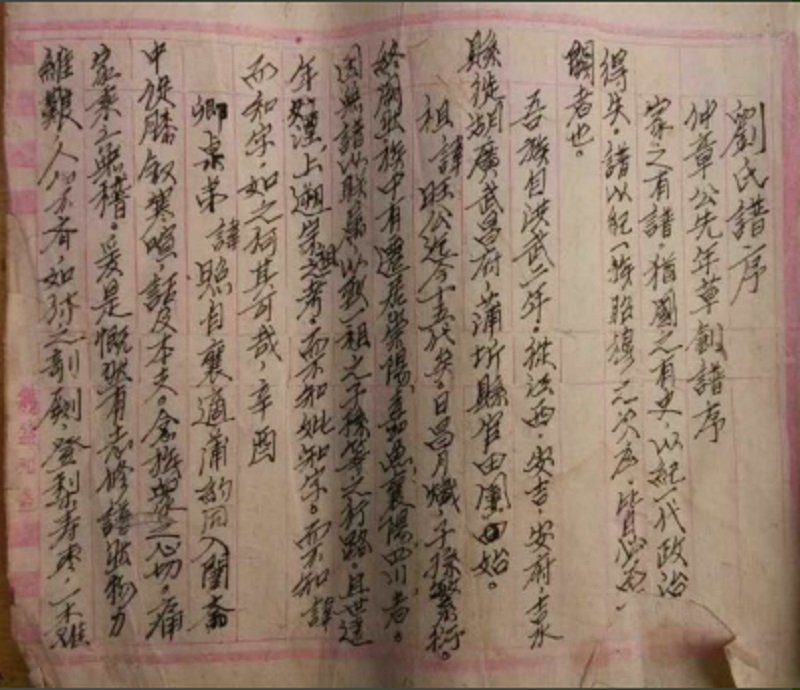 劉氏譜序
仲章公先年草創譜序
家之有譜，猶國之有史，以紀一代政治
得失。譜以紀一族昭穆之次序，皆必不
闕者也。
吾族自洪武二年，從江西，安吉，安府，吉水
縣徙湖廣武昌府，蒲圻縣官田團始。
祖諱旺公迄今十五代矣。日昌月熾，子孫繁衍。
終闕此族中有遷居崇陽，嘉魚，襄陽，四川者。
因無譜以聯屬，以致一祖之子孫等之行路，且世遠
年湮，上遡崇祖之考，而不知妣，知字。而不知諱
而知字，如之何其可哉，辛酉
卿泉弟諱照自襄適蒲約同入闈齋
中促膝叙寒暄，話及本支。念族誼之心切。痛
家乘之無稽。爰是慨然有志修譜，出物力
維艱，人心不齊，如弥之剞劂，登梨棗，一本難